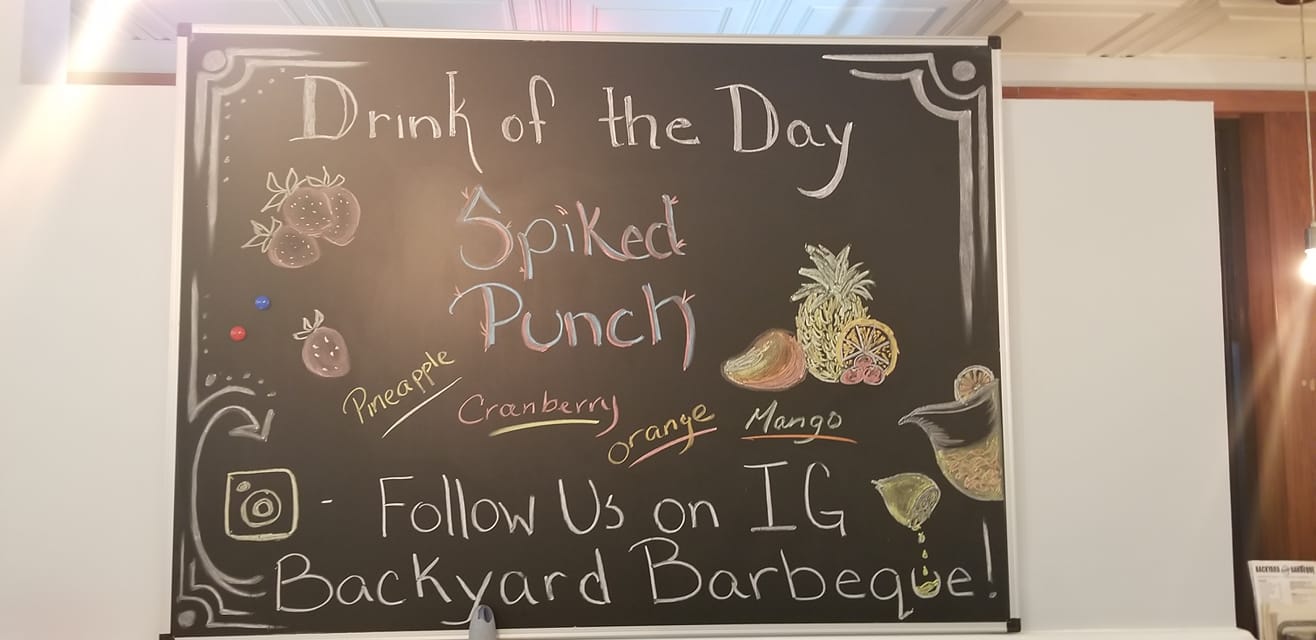 Drink of the Day
Spiked
Punch
Pineapple Cranberry orange Mango
- Follow Us on IG
Backyard Barbeque!
BACKYARD BARBEQUE